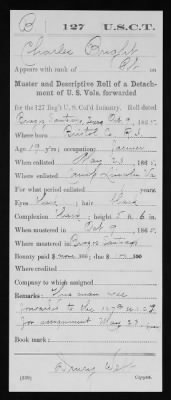 B 127 U.S.C.T.
Charles Bright
Appears with rank of Pt. on
Muster and Descriptive Roll of a Detach-
ment of U. S. Vols. forwarded
for the 127 Reg't U. S. Col'd Infantry. Roll dated
Brazos Santiago, Texas Oct 9, 1865.
Where born Bristol Co. R.I.
Age 19 y'rs; occupation Farmer
When enlisted May 23, 1865.
Where enlisted Camp Lincoln Va
For what period enlisted years.
Eyes ; hair Black
Complexion ; height 5 ft. 6 in.
When mustered in Oct 9, 1865.
Where mustered in Brazos Santiago
Bounty paid $ none 100; due $ 100 100
Where credited
Company to which assigned
Remarks: This man was
forwarded to the 127th U.S.C.T.
for assignment May 23
Book mark:
Drury
(339) Copyist.